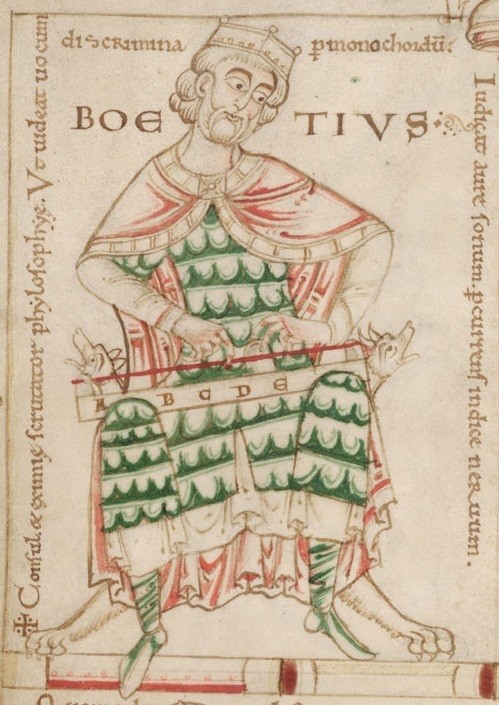 ✣ Consul & eximię scrutator phylosophyę. Vt uideat uocum
discrimina p monochordū:
Iudicat aure sonum. pcurrens indice neruum.
BOETIVS
A B C D E